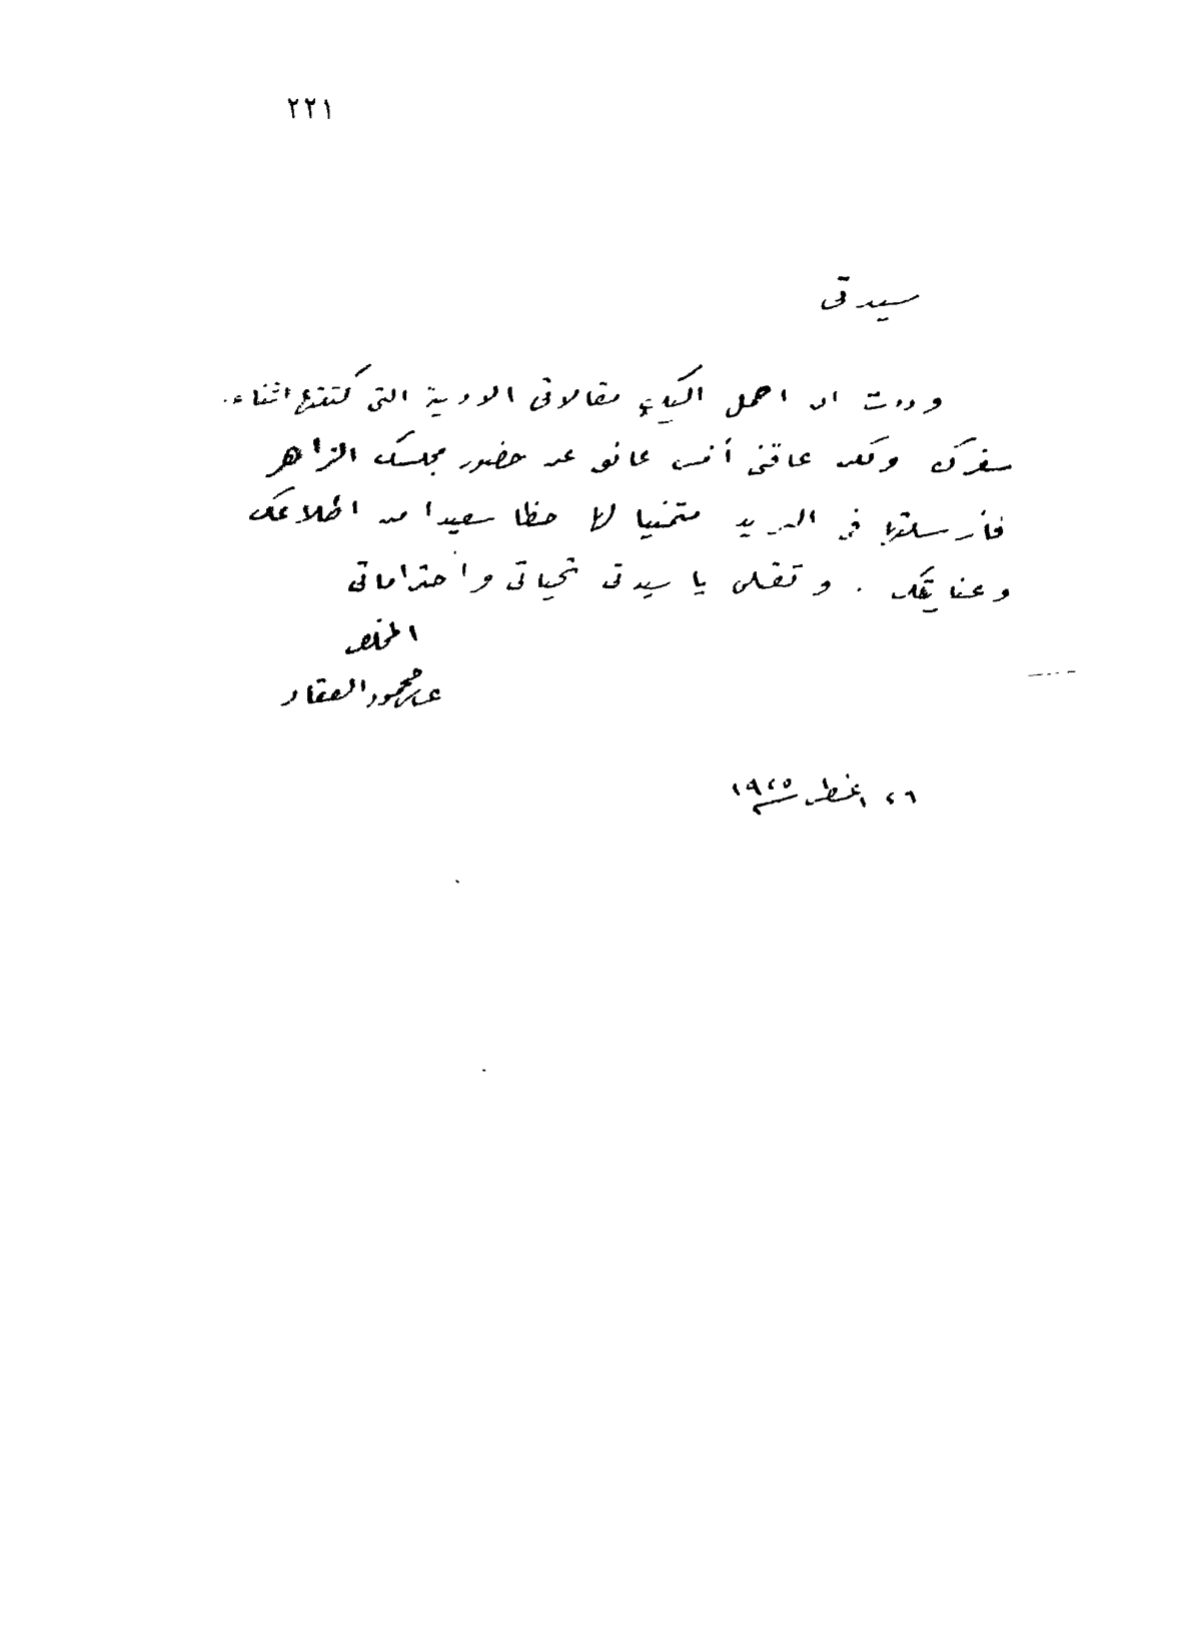 ٢٢١
سيدتى
وددت ان احمل اليك مقالاتى الادبية التى كتبتها اثناء
سفرك ولكن عاقنى أمس عائق عن حضور مجلسك الزاهر
فأرسلتها فى البريد متمنيا لها حظا سعيدا من اطلاعك
وعنايتك . وتقبلى يا سيدتى تحياتى واحتراماتى
المخلص
عباس محمود العقاد
٢٦ اغسطس ١٩٢٥